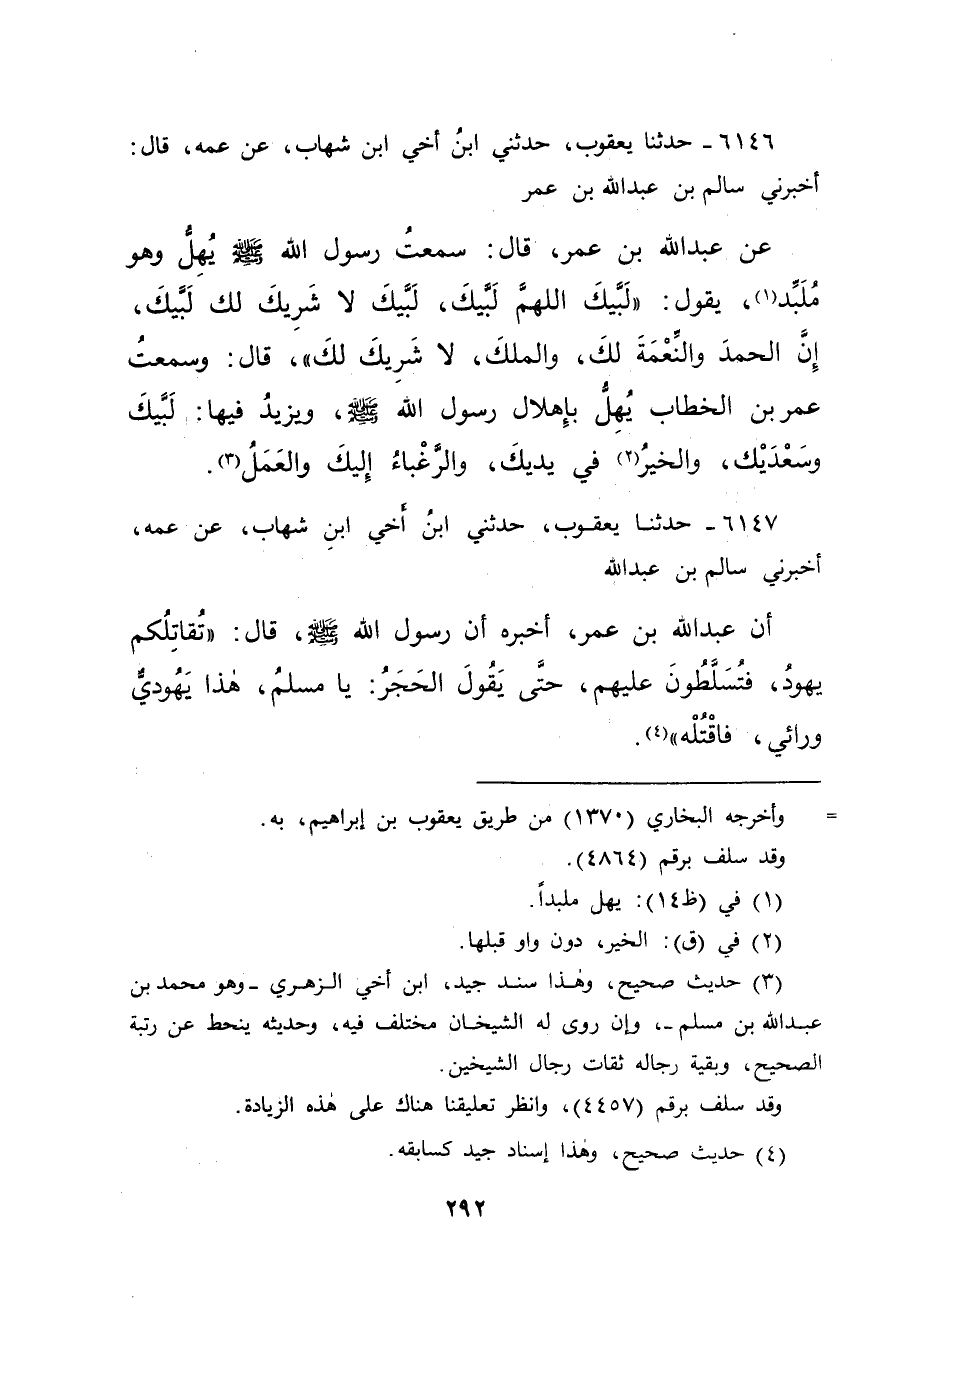 ٦١٤٦ - حدثنا يعقوب، حدثني ابنُ أخي ابن شهاب، عن عمه، قال:
أخبرني سالم بن عبدالله بن عمر
عن عبدالله بن عمر، قال: سمعتُ رسول الله ﷺ يُهِلُّ وهو
مُلَبِّد(١)، يقول: «لَبَّيكَ اللهمَّ لَبَّيكَ، لَبَّيكَ لا شَرِيكَ لك لَبَّيكَ،
إِنَّ الحمدَ والنِّعْمَةَ لكَ، والملكَ، لا شَرِيكَ لكَ»، قال: وسمعتُ
عمر بن الخطاب يُهِلُّ بإهلال رسول الله ﷺ، ويزيدُ فيها: لَبَّيكَ
وسَعْدَيْك، والخيرُ(٢) في يديكَ، والرَّغْباءُ إليكَ والعَمَلُ(٣).
٦١٤٧ - حدثنا يعقوب، حدثني ابنُ أَخي ابنِ شهاب، عن عمه،
أخبرني سالم بن عبدالله
أن عبدالله بن عمر، أخبره أن رسول الله ﷺ، قال: «تُقاتِلُكم
يهودُ، فتُسَلَّطُونَ عليهم، حتَّى يَقُولَ الحَجَرُ: يا مسلمُ، هٰذا يَهُوديٌّ
ورائي، فاقْتُلْه»(٤).
= وأخرجه البخاري (١٣٧٠) من طريق يعقوب بن إبراهيم، به.
وقد سلف برقم (٤٨٦٤).
(١) في (ظ١٤): يهل ملبداً.
(٢) في (ق): الخير، دون واو قبلها.
(٣) حديث صحيح، وهٰذا سند جيد، ابن أخي الزهري - وهو محمد بن
عبدالله بن مسلم -، وإن روى له الشيخان مختلف فيه، وحديثه ينحط عن رتبة
الصحيح، وبقية رجاله ثقات رجال الشيخين.
وقد سلف برقم (٤٤٥٧)، وانظر تعليقنا هناك على هٰذه الزيادة.
(٤) حديث صحيح، وهٰذا إسناد جيد كسابقه.
٢٩٢